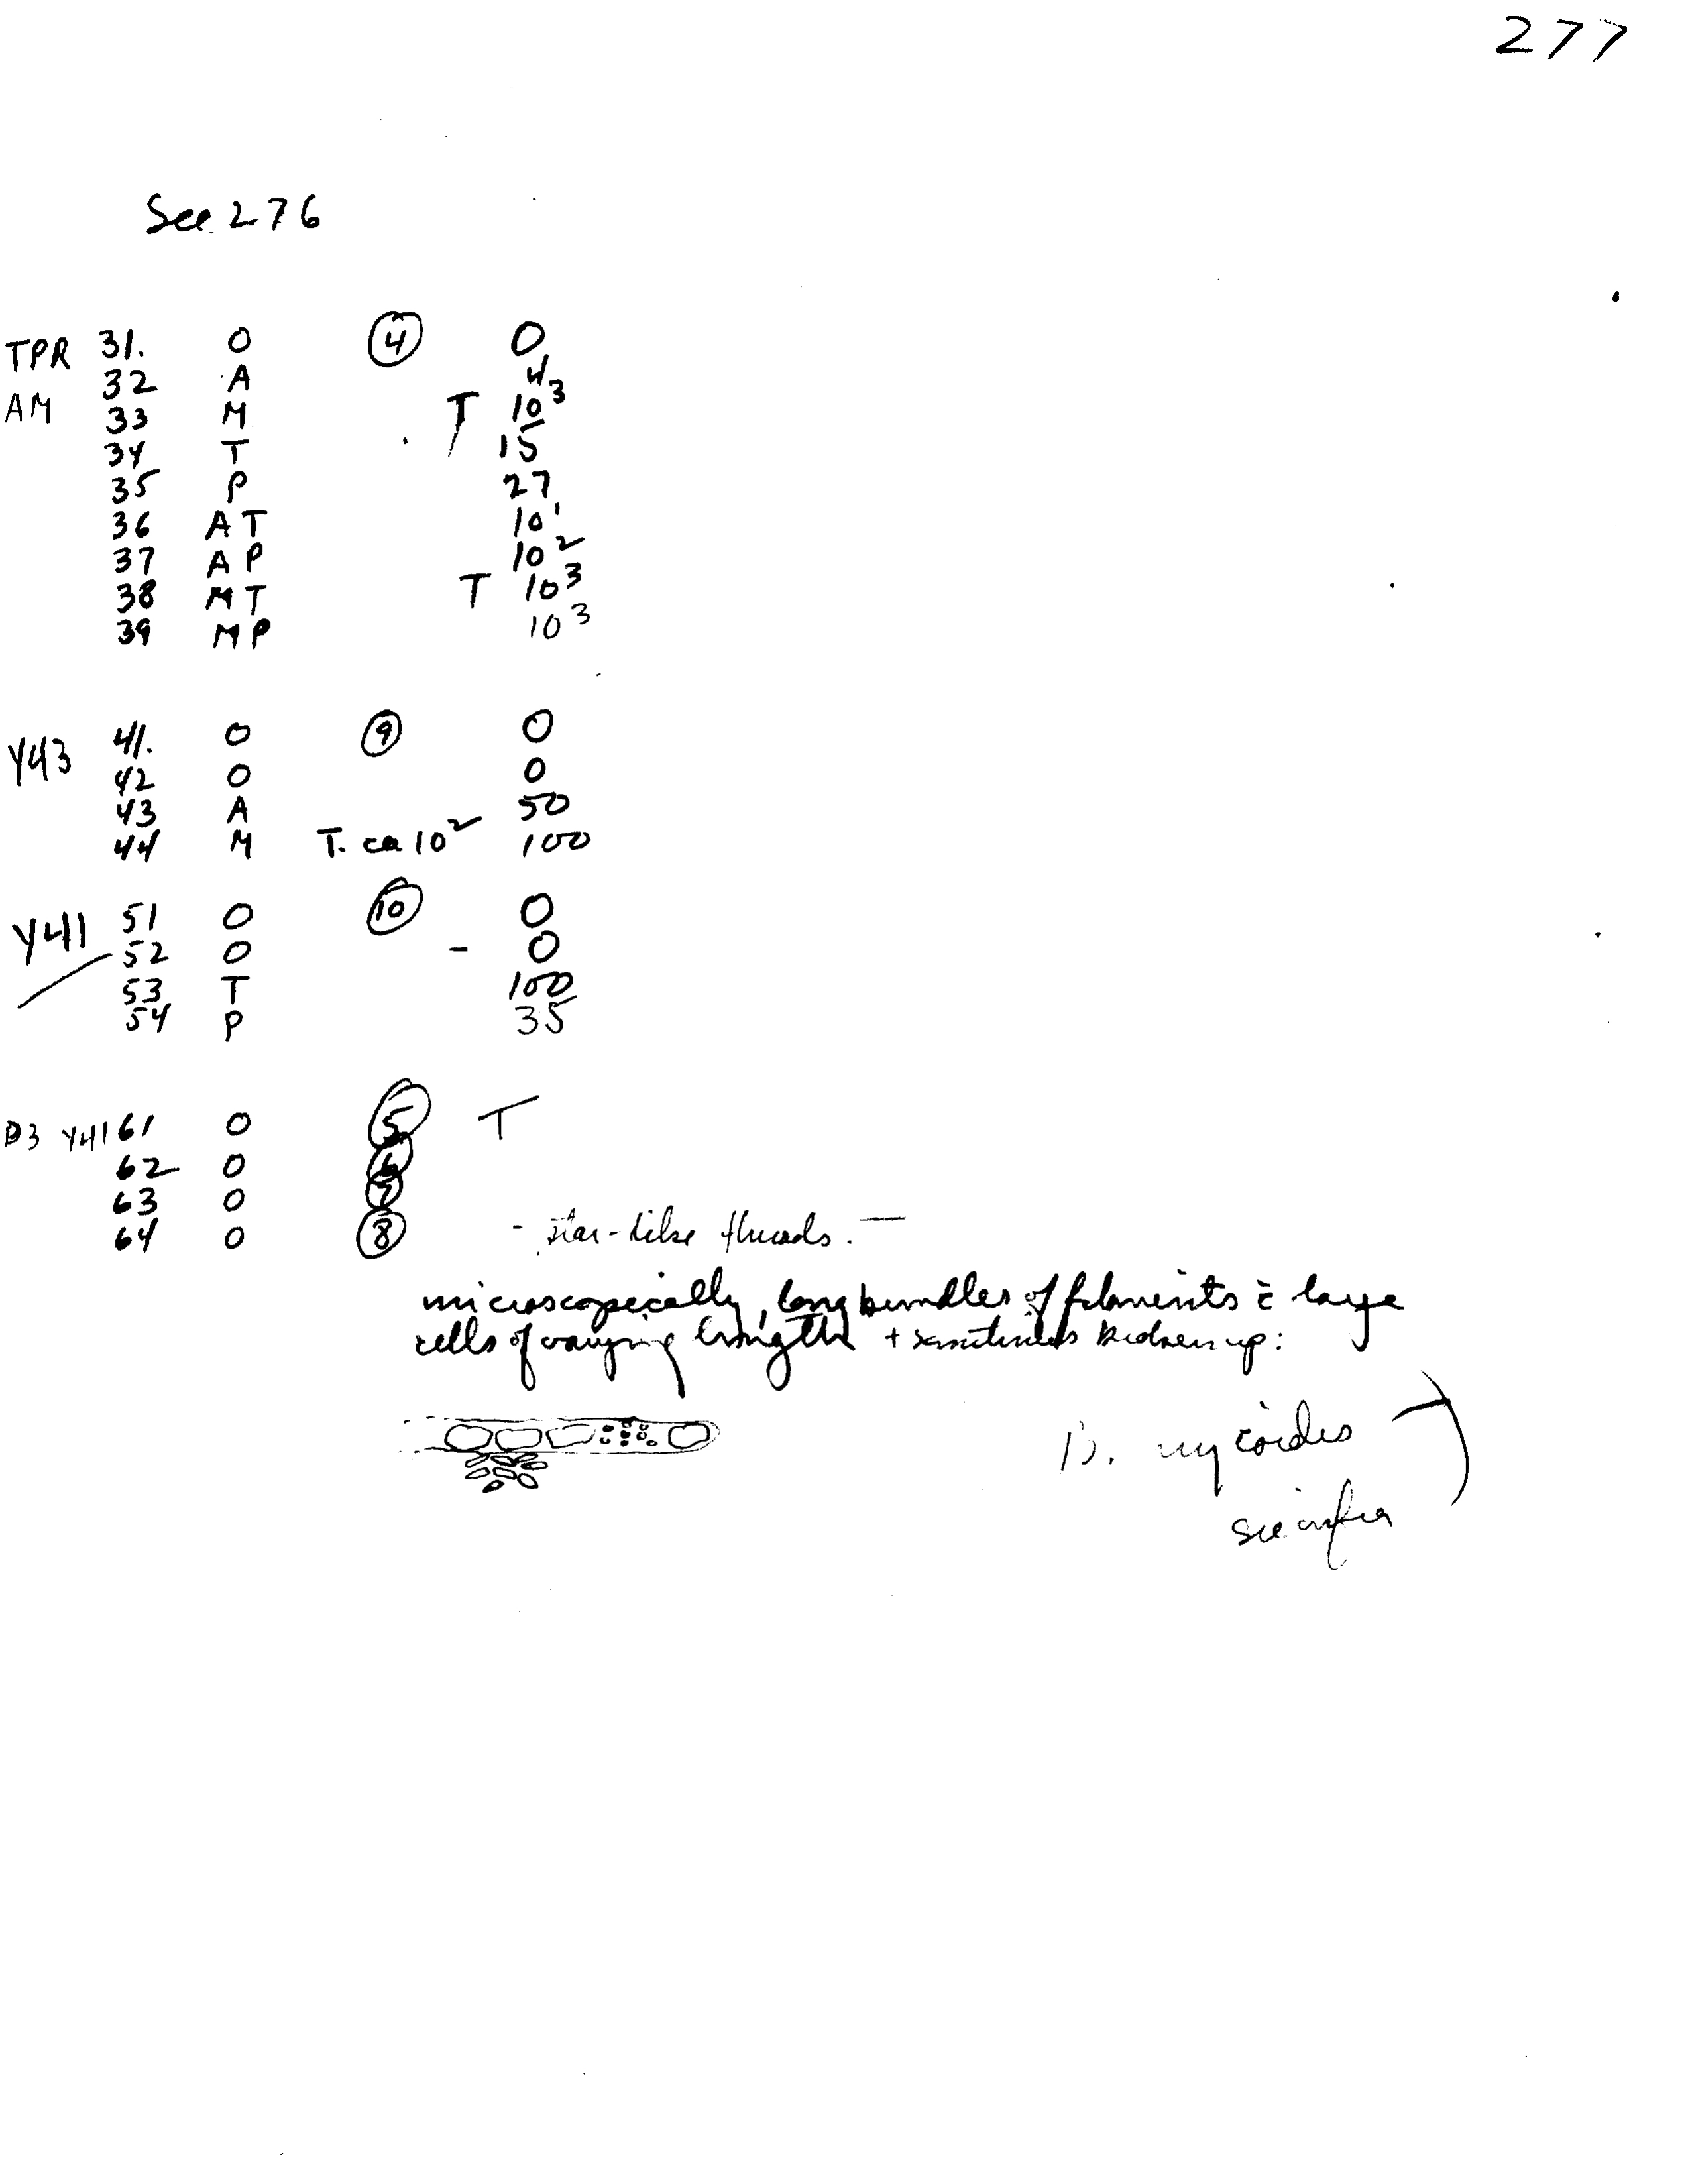 277
See 276
TPR 31. O ④ O
32 A 4
AM 33 M T 10³
34 T 15
35 P 27
36 A T 10¹
37 A P 10²
38 M T T 10³
39 M P 10³
Y43 41. O ⑨ O
42 O O
43 A 50
44 M T. ca 10² 100
Y41 51 O ⑩ O
52 O - O
53 T 100
54 P 35
B3 Y41 61 O ⑤ T
62 O ⑥
63 O ⑦
64 O ⑧ - star-like threads. —
microscopically, long bundles of filaments c̄ large
cells of varying length + sometimes broken up:
B. mycoides
see infra